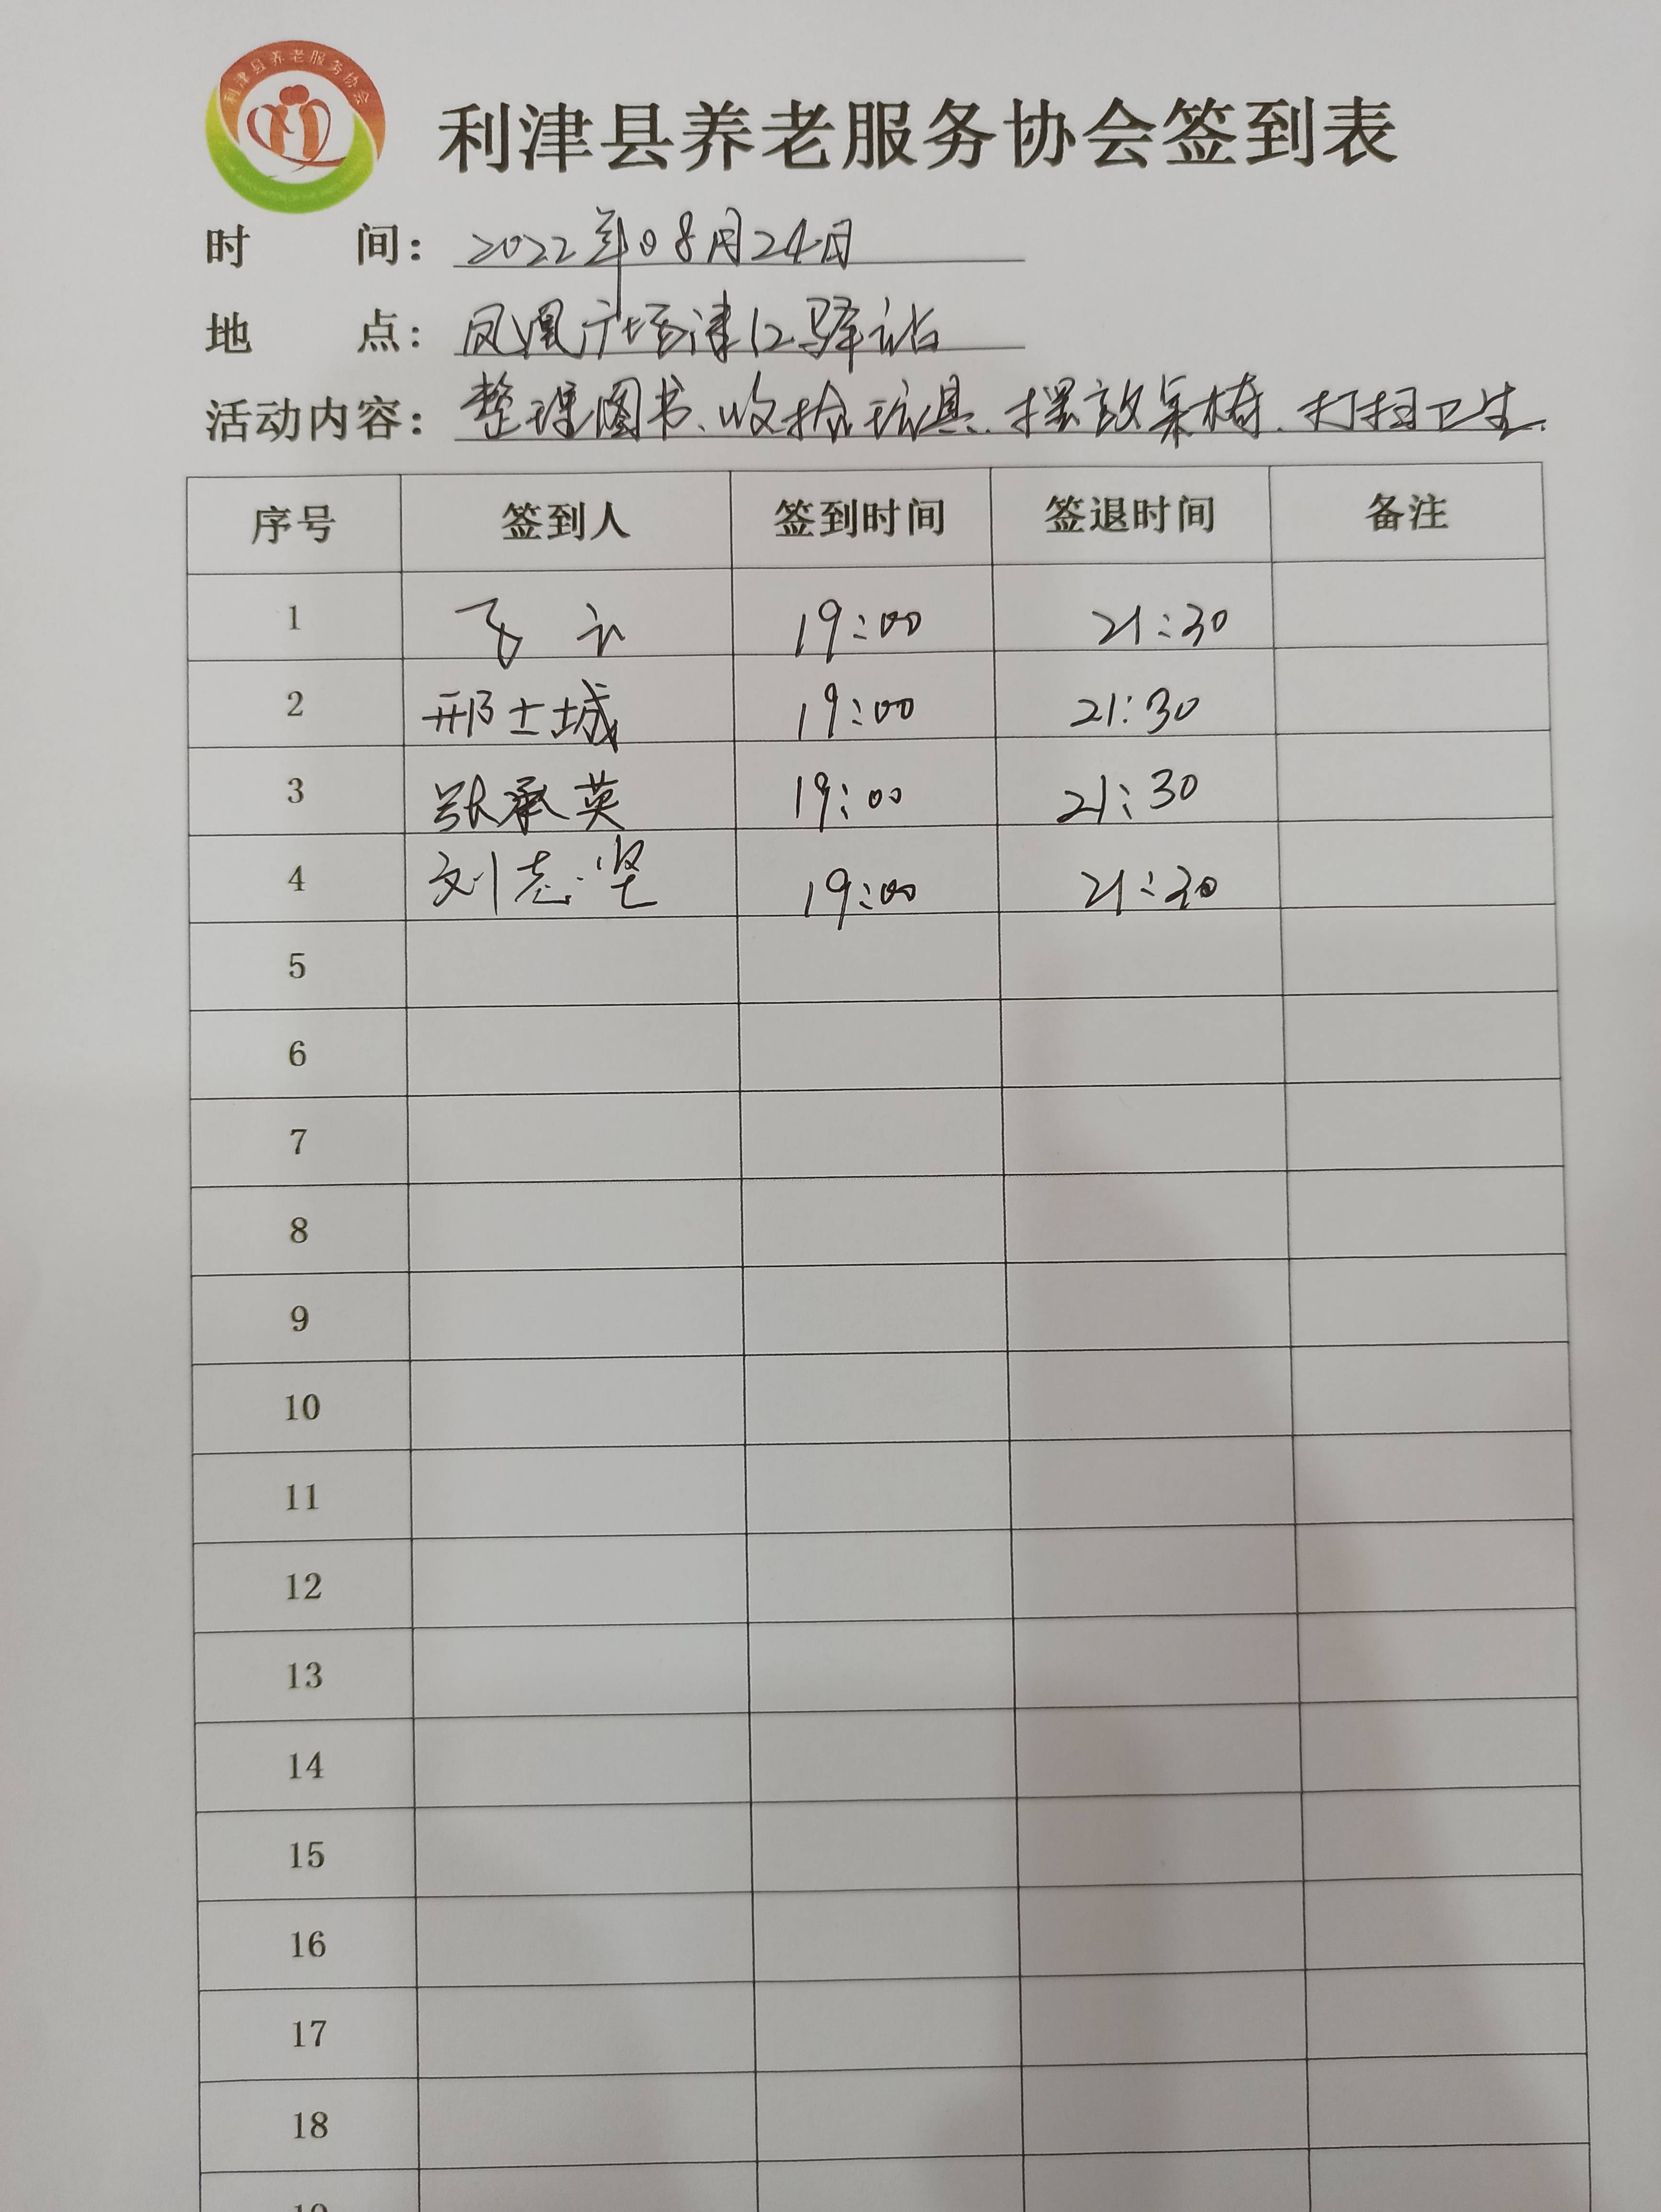 利津县养老服务协会
利津县养老服务协会签到表
时 间：2022年08月24日
地 点：凤凰广场津122驿站
活动内容：整理图书、收拾玩具、摆放桌椅、打扫卫生.
序号 签到人 签到时间 签退时间 备注
1 19:00 21:30
2 邢士城 19:00 21:30
3 张承英 19:00 21:30
4 刘志坚 19:00 21:30
5
6
7
8
9
10
11
12
13
14
15
16
17
18
19